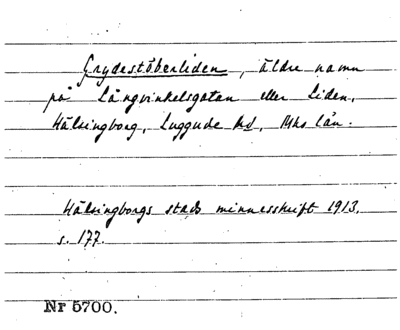 Grydestöberliden, äldre namn
på Långvinkelsgatan eller Liden,
Hälsingborg, Luggude hd, Mhs län.
Hälsingborgs stads minnesskrift 1913,
s. 177.
Nr 5700.